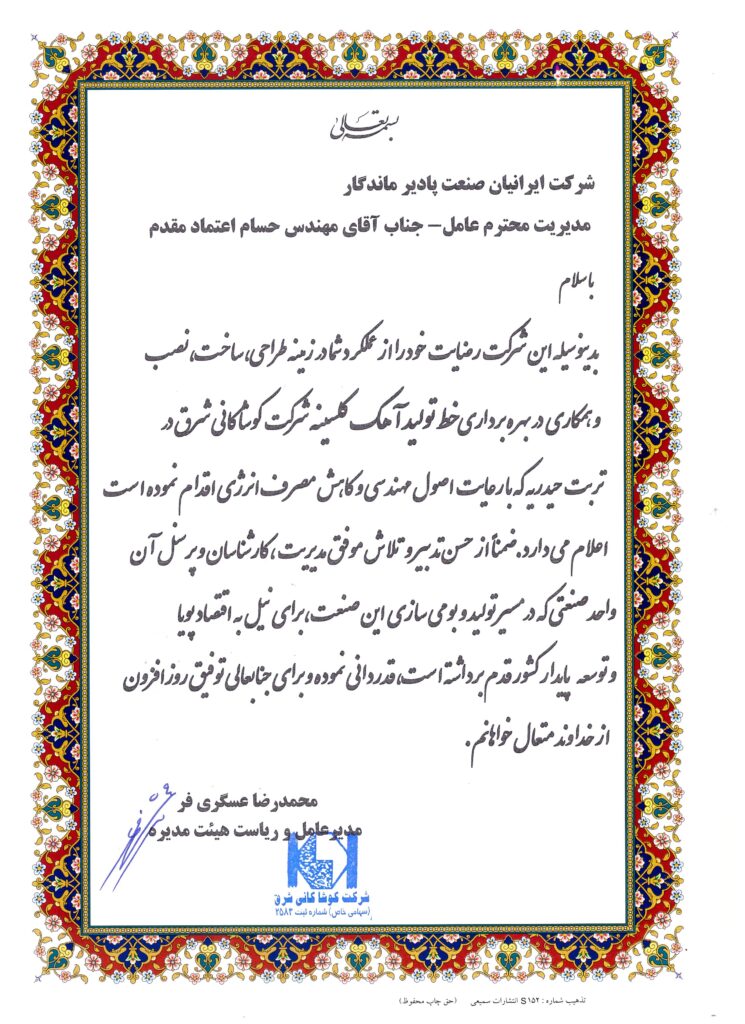 بسمه تعالی
شرکت ایرانیان صنعت پادیر ماندگار
مدیریت محترم عامل – جناب آقای مهندس حسام اعتماد مقدم
با سلام
بدینوسیله این شرکت رضایت خود را از عملکرد شما در زمینه طراحی، ساخت، نصب
و همکاری در بهره برداری خط تولید آهک کلسینه شرکت کوشا کانی شرق در
تربت حیدریه که با رعایت اصول مهندسی و کاهش مصرف انرژی اقدام نموده است
اعلام می دارد. ضمناً از حسن تدبیر و تلاش موفق مدیریت، کارشناسان و پرسنل آن
واحد صنعتی که در مسیر تولید و بومی سازی این صنعت، برای نیل به اقتصاد پویا
و توسعه پایدار کشور قدم برداشته است، قدردانی نموده و برای جنابعالی توفیق روز افزون
از خداوند متعال خواهانم.
محمدرضا عسگری فر
مدیرعامل و ریاست هیئت مدیره
شرکت کوشا کانی شرق
(سهامی خاص) شماره ثبت ۲۵۸۳
تذهیب شماره : S ۱۵۲ انتشارات سمیعی (حق چاپ محفوظ)